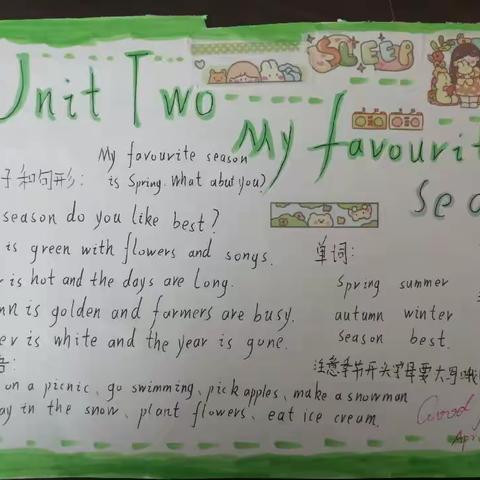 Unit Two
SLEEP
My favourit
Sea
子和句形:
My favourite season
is Spring. What abut you?
season do you like best?
is green with flowers and songs.
r is hot and the days are long.
mn is golden and farmers are busy.
er is white and the year is gone.
单词:
Spring summer
autumn winter
season best.
注意季节开头字母要大写哦
语:
on a picnic、go swimming、pick apples、make a snowman
ay in the snow、plant flowers、eat ice cream.
Good
Apr